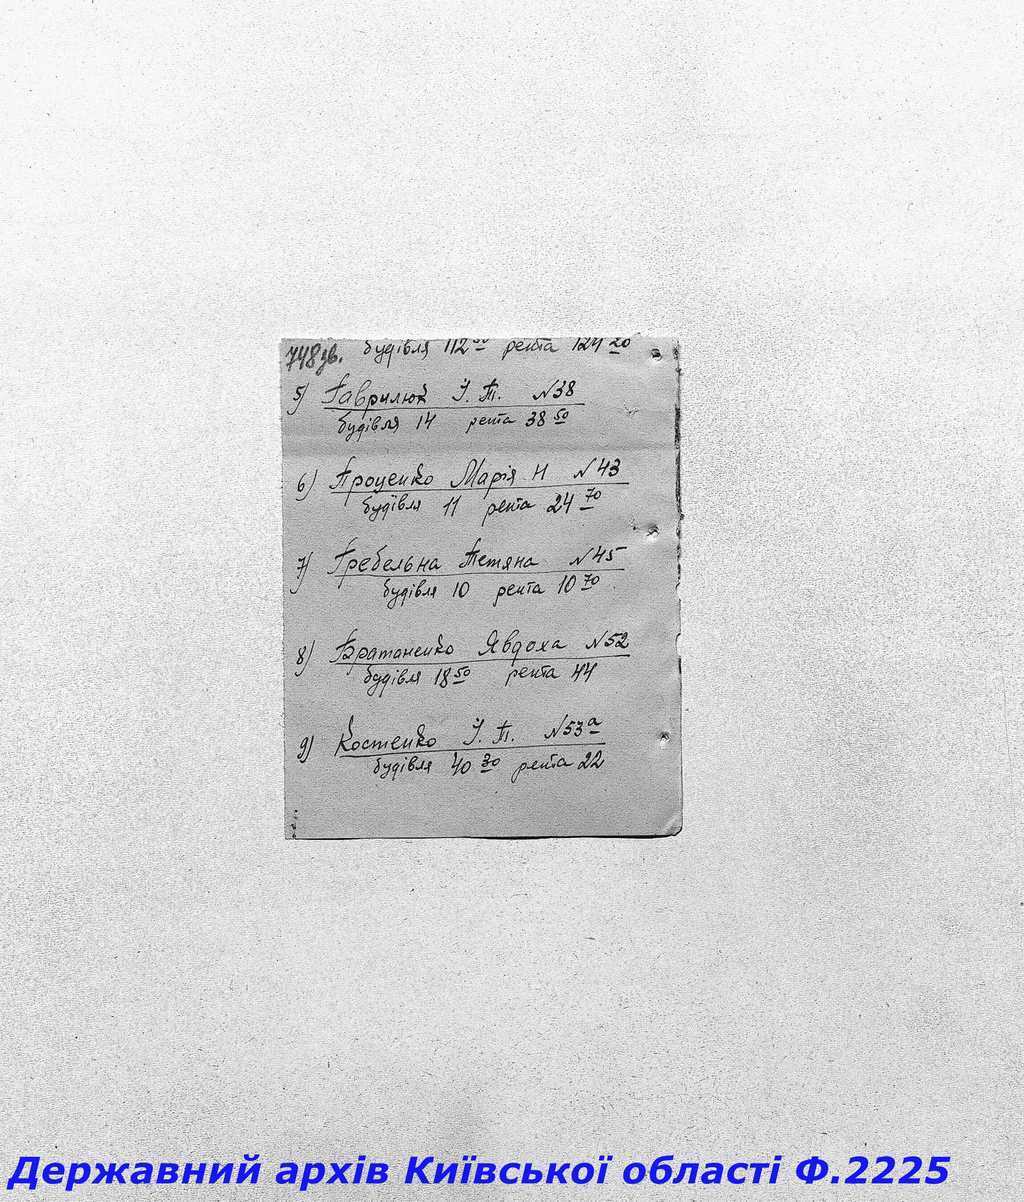 748 зв. будівля 112 рента 124 20
5) Гаврилюк І. Т. №38
будівля 14 рента 38 50
6) Проценко Марія Н №43
будівля 11 рента 24 70
7) Гребельна Тетяна №45
будівля 10 рента 10 70
8) Братаненко Явдоха №52
будівля 18 50 рента 44
9) Костенко І. Т. №53 а
будівля 40 30 рента 22
Державний архів Київської області Ф.2225